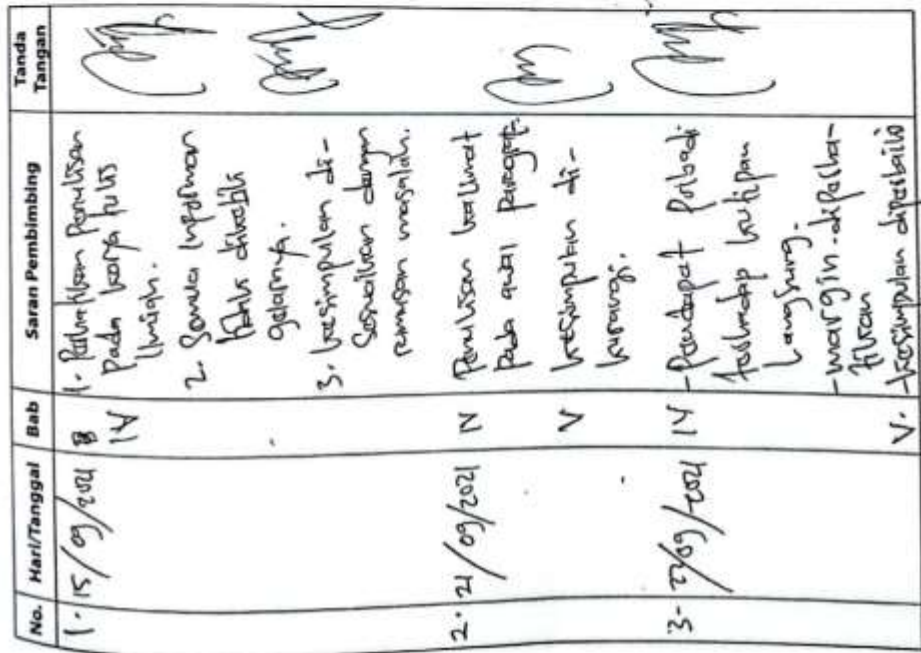 No. Hari/Tanggal Bab Saran Pembimbing Tanda Tangan
1. 15/09/2021 IV 1. Perhatikan penulisan
pada karya tulis
ilmiah.
2. Semua informan
harus
gelarnya.
3. kesimpulan di-
sesuaikan dengan
rumusan masalah.
2. 21/09/2021 IV Penulisan kalimat
pada awal paragraf.
V kesimpulan di-
kurangi.
3. 22/09/2021 IV - Pendapat Pribadi
terhadap kutipan
Langsung.
- margin diperha-
tikan
V. - kesimpulan diperbaiki